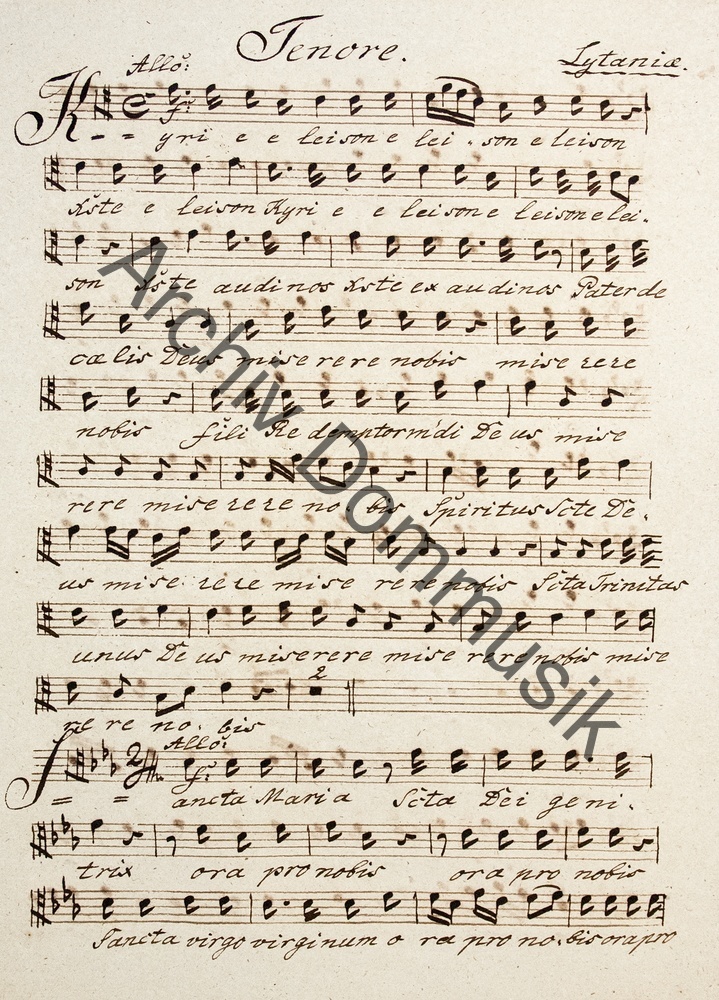 Tenore.
Lytaniæ.
Allo:
f:
K - = yri e e leison e lei - son e leison
Xste e leison Kyri e e leison e leison e lei-
son Xste audi nos Xste ex audi nos Pater de
cœlis Deus mise rere nobis mise rere
nobis fili Redemptor mūdi De us mise
rere mise re re no - bis Spiritus Scte De-
us mise re re mise re re nobis Scta Trinitas
unus De us miserere mise re re nobis mise
2
re re no - bis
Allo:
f:
S = = ancta Maria Scta Dei geni-
trix ora pro nobis ora pro nobis
Sancta virgo virginum o ra pro no-bis ora pro
Archiv Dommusik